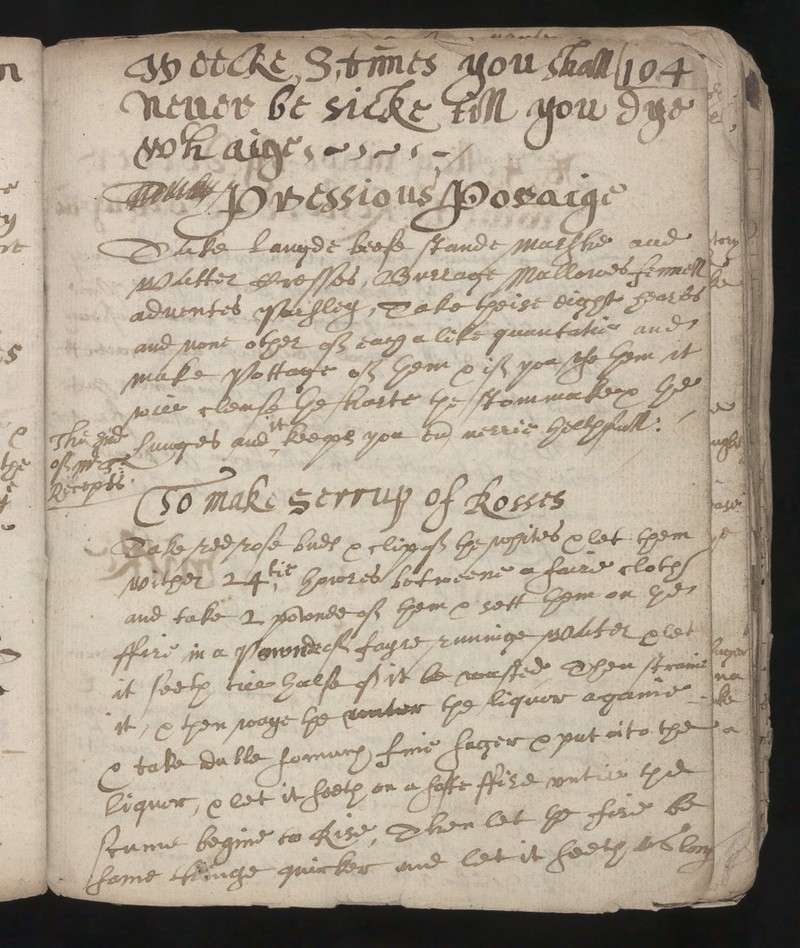 Weecke, 3, times you shall 104
never be sicke till you dye
wh aige
Pressious Potaige
Take Langde beefe stande marshe and
Watter Cresses, Burrage Mallowes fennell
adventes Parsley, Take theise eight hearbs
and none other of each a like quantatie and
make Pottage of them & if you use them it
will clense the harte the stommake & the
Lunges and it keepes you merrie helthfull:
The End
of
Recepts
To make Serrup of Rosses
Take red rose buds & clip of the whites & let them
wither 24tie howres betweene a faire cloth
and take 2 pownde of them & sett them on the
ffire in a of fayre runninge Water & let
it seeth till halfe of it be wasted Then straine
it, & then waye the water the liquor againe
& take duble somuch fine suger & put into the
liquor, & let it seeth on a softe ffire untill the
scume begine to Rise, Then let the fire be
some thinge quicker and let it seeth as long